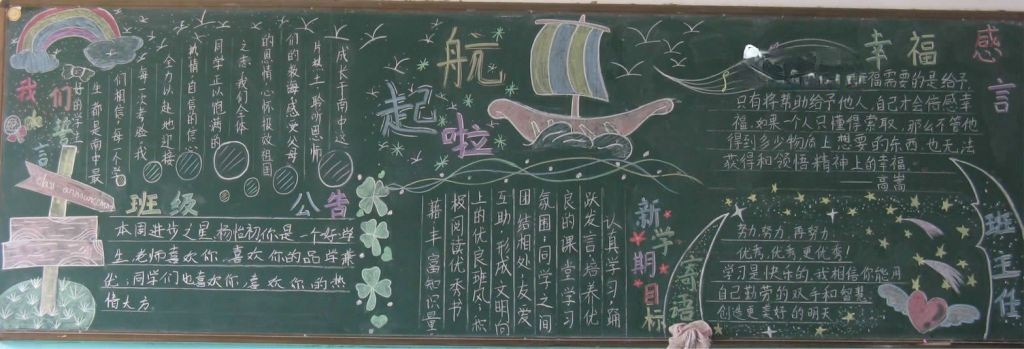 我们
言
成长于南中这
片热土，聆听恩师
们的教诲，感受父母
的恩情，心怀报效祖国
之志，我们全体
同学正以饱满的
热情，自信的信心
全力以赴地迎接
每一次考验，我
们相信：每一个学
生都是南中最
好的学生
航
起
啦
幸福
感言
幸福需要的是给予,
只有将帮助给予他人,自己才会倍感幸
福.如果一个人只懂得索取,那么不管他
得到多少物质上想要的东西,也无法
获得和领悟精神上的幸福.
——高嵩
class announcement
班级公告
本周进步之星:杨怡初,你是一个好学
生,老师喜欢你,喜欢你的品学兼
优,同学们也喜欢你,喜欢你的热
情大方.
新学期目标
认真学习，踊
跃发言，培养优
良的课堂学习
氛围，同学之间
团结相处，友爱
互助，形成文明向
上的优良班风，积
极阅读优本书
藉，丰富知识量
班主任
寄语
努力,努力,再努力!
优秀,优秀,更优秀!
学习是快乐的,我相信你能用
自己勤劳的双手和智慧
创造更美好的明天!